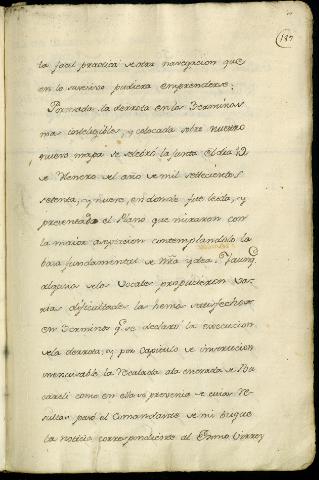 137
la facil practica de otra navegacion que
en lo succesivo pudiera emprenderse.
Formada la derrota en los Terminos
mas inteligibles, y colocada sobre nuestro
nuevo mapa se celebró la Junta el dia 19
de Henero del año de mil settecientos
setenta, y nueve, en donde fue leida, y
presentado el Plano que miraron con
la maior atencion contemplandolo la
basa fundamental de Nña ydea. Y aunq.e
algunos de los Vocales propusieron va-
rias dificultades las hemos satisfechos
en Terminos q.e se declaró la execucion
de la derrota; y por capitulo de instruccion
inescusable la Recalada a la entrada de Bu
careli como en ella se prevenia de cuias Re-
sultas pasó el Comandante de mi buque
la noticia correspondiente al Exmo Virrey